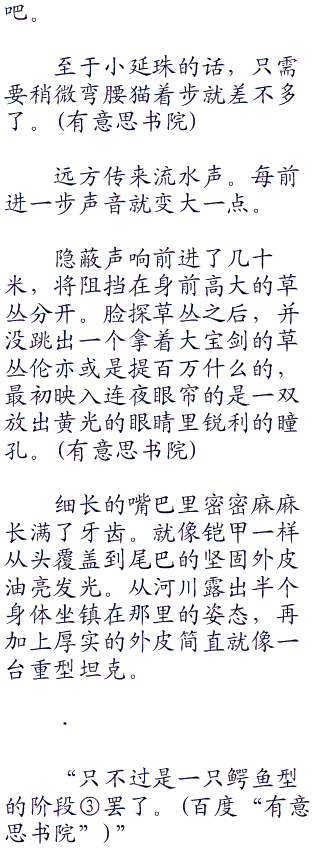 吧。
至于小延珠的话，只需
要稍微弯腰猫着步就差不多
了。(有意思书院)
远方传来流水声。每前
进一步声音就变大一点。
隐蔽声响前进了几十
米，将阻挡在身前高大的草
丛分开。脸探草丛之后，并
没跳出一个拿着大宝剑的草
丛伦亦或是提百万什么的，
最初映入连夜眼帘的是一双
放出黄光的眼睛里锐利的瞳
孔。(有意思书院)
细长的嘴巴里密密麻麻
长满了牙齿。就像铠甲一样
从头覆盖到尾巴的坚固外皮
油亮发光。从河川露出半个
身体坐镇在那里的姿态，再
加上厚实的外皮简直就像一
台重型坦克。
．
“只不过是一只鳄鱼型
的阶段③罢了。(百度“有意
思书院”)”